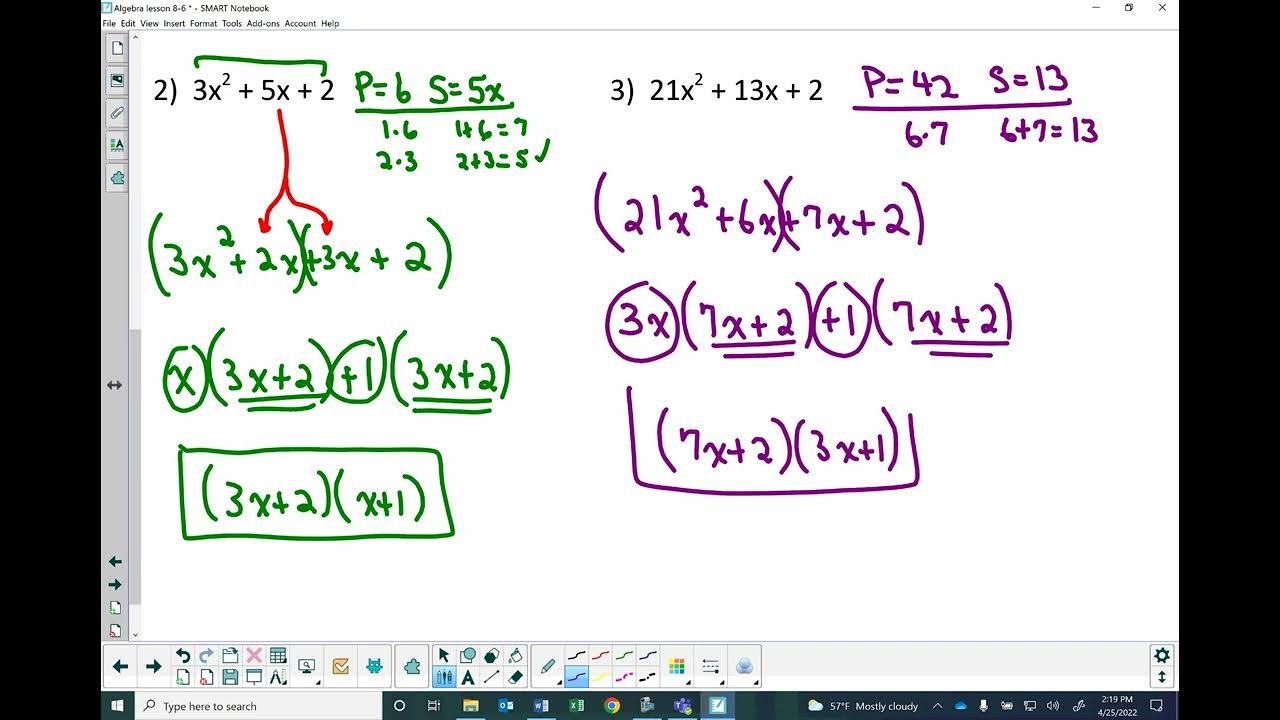 Algebra lesson 8-6 * - SMART Notebook
File Edit View Insert Format Tools Add-ons Account Help
2) 3x² + 5x + 2 P=6 S=5x
1·6 1+6=7
2·3 2+3=5 ✓
(3x²+2x)(+3x+2)
x(3x+2)+1(3x+2)
(3x+2)(x+1)
3) 21x² + 13x + 2 P=42 S=13
6·7 6+7=13
(21x²+6x)(+7x+2)
3x(7x+2)+1(7x+2)
(7x+2)(3x+1)
Type here to search
57°F Mostly cloudy
2:19 PM
4/25/2022